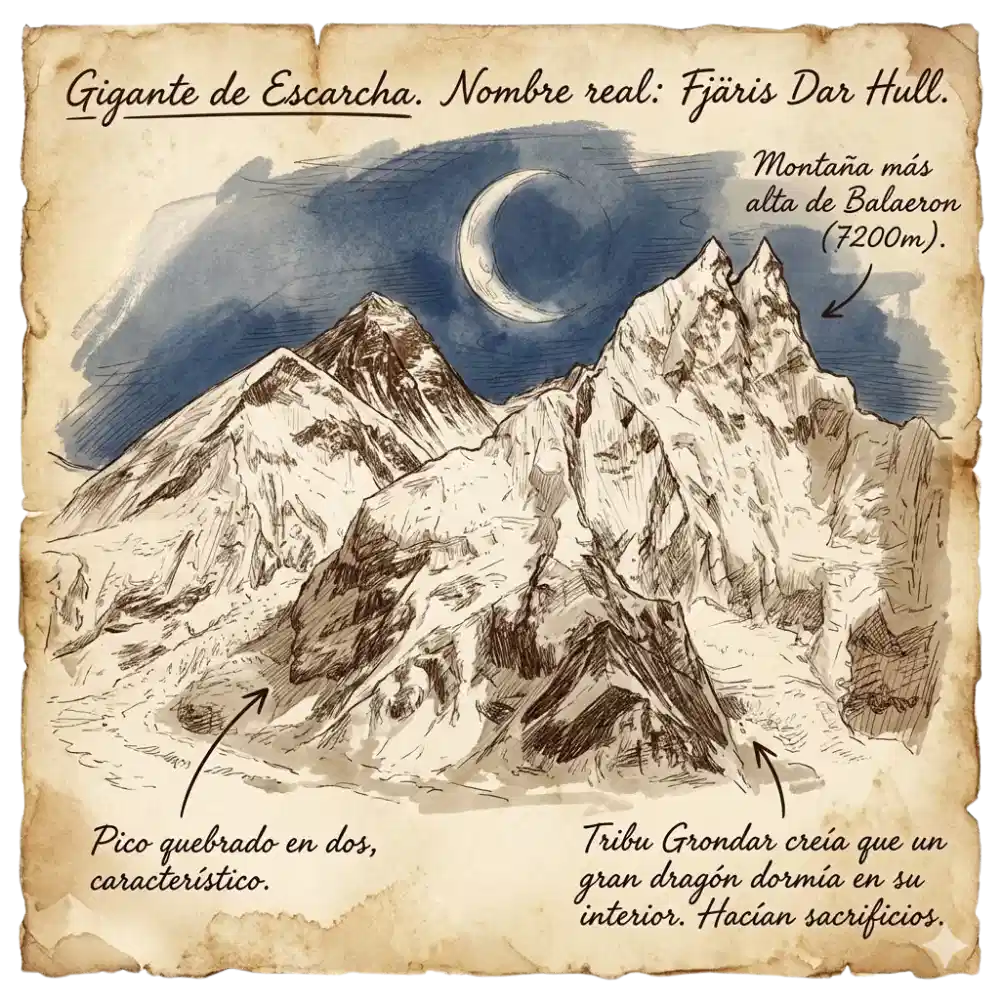 Gigante de Escarcha. Nombre real: Fjäris Dar Hull.
Montaña más
alta de Balaeron
(7200m).
Pico quebrado en dos,
característico.
Tribu Grondar creía que un
gran dragón dormía en su
interior. Hacían sacrificios.